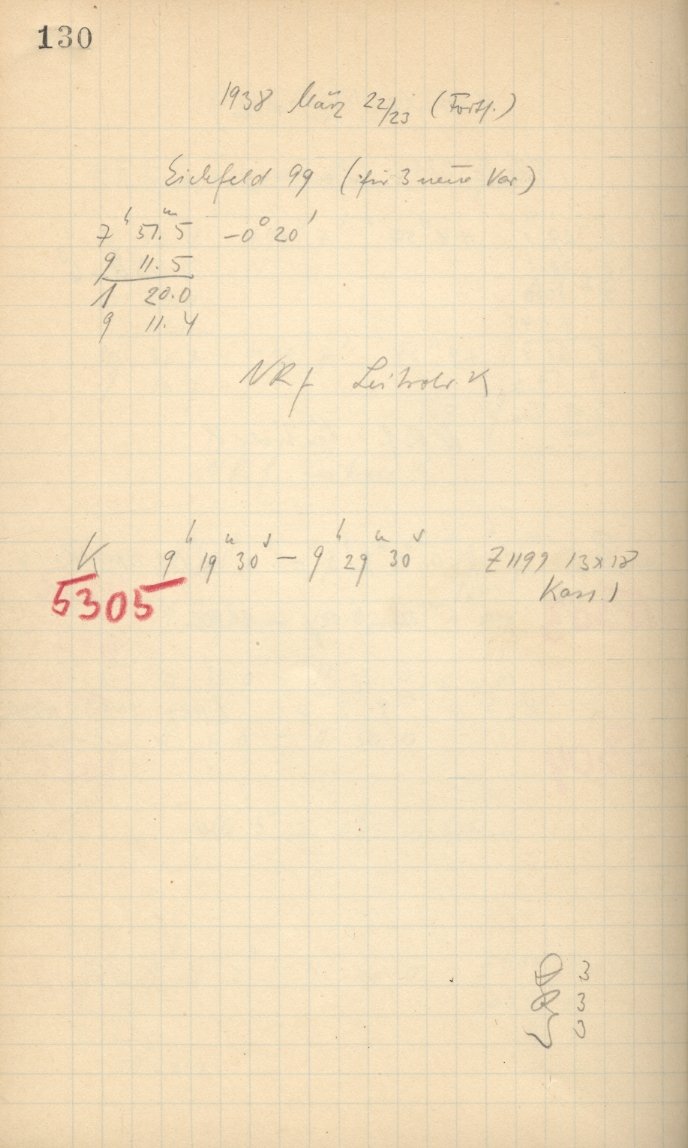 130
1938 März 22/23 (Forts.)
Eichfeld 99 (für 3 neue Var)
7h 51m.5 -0° 20'
9 11.5
1 20.0
9 11.4
NRf Leitrohr K
K 9h 19m 30s – 9h 29m 30s Z1199 13x18
5305 Kass 1
3
3
3